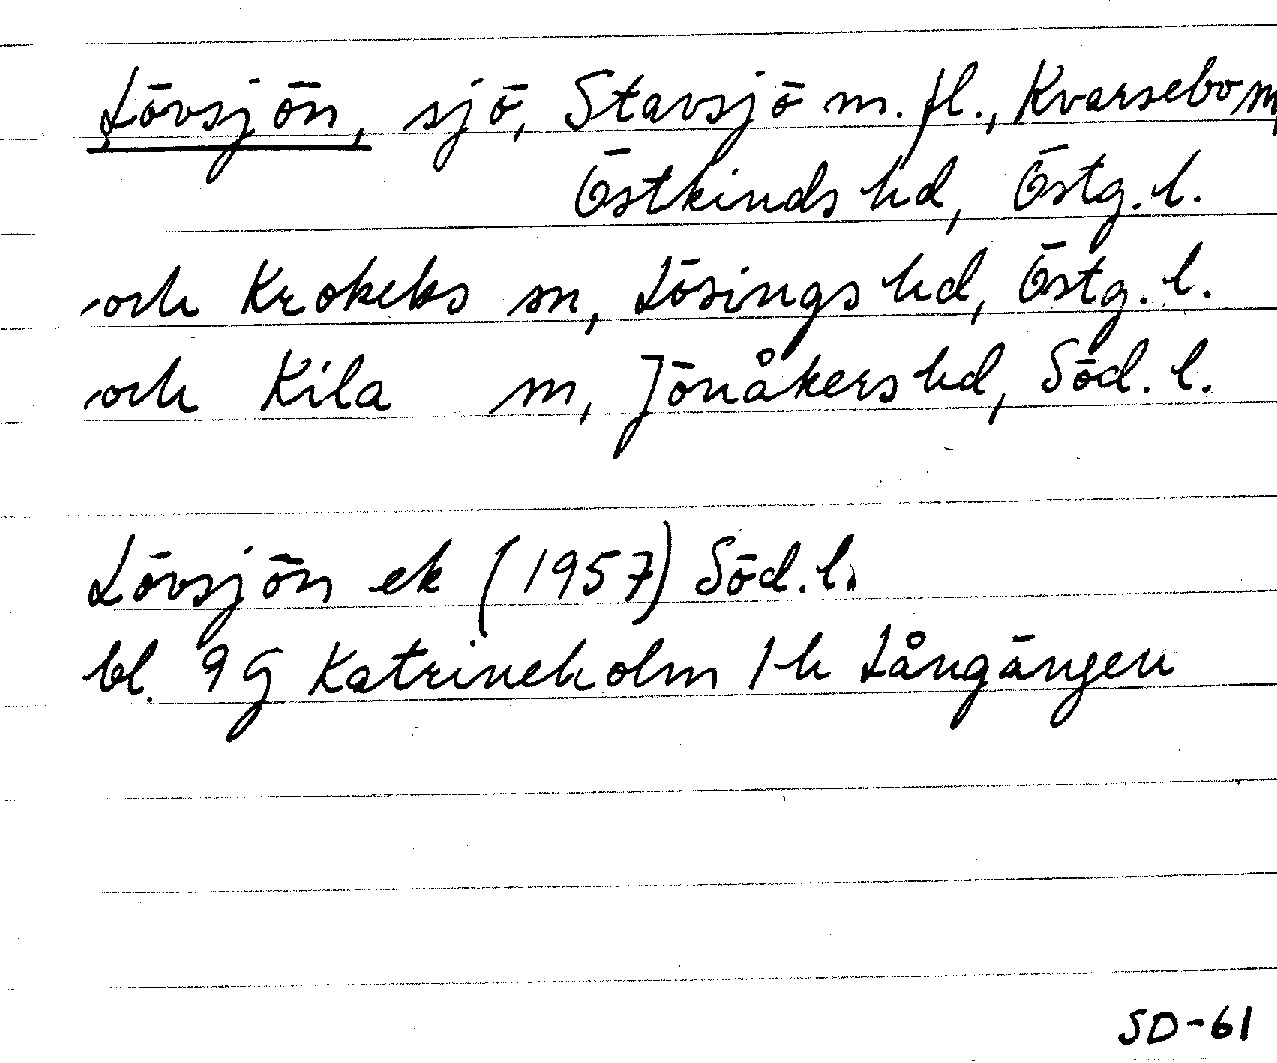 Lövsjön, sjö, Stavsjö m. fl., Kvarsebo sn,
Östkinds hd, Östg. l.
och Krokeks sn, Lösings hd, Östg. l.
och Kila sn, Jönåkers hd, Söd. l.
Lövsjön ek (1957) Söd. l.
bl. 9G Katrineholm 1h Långängen
SD-61